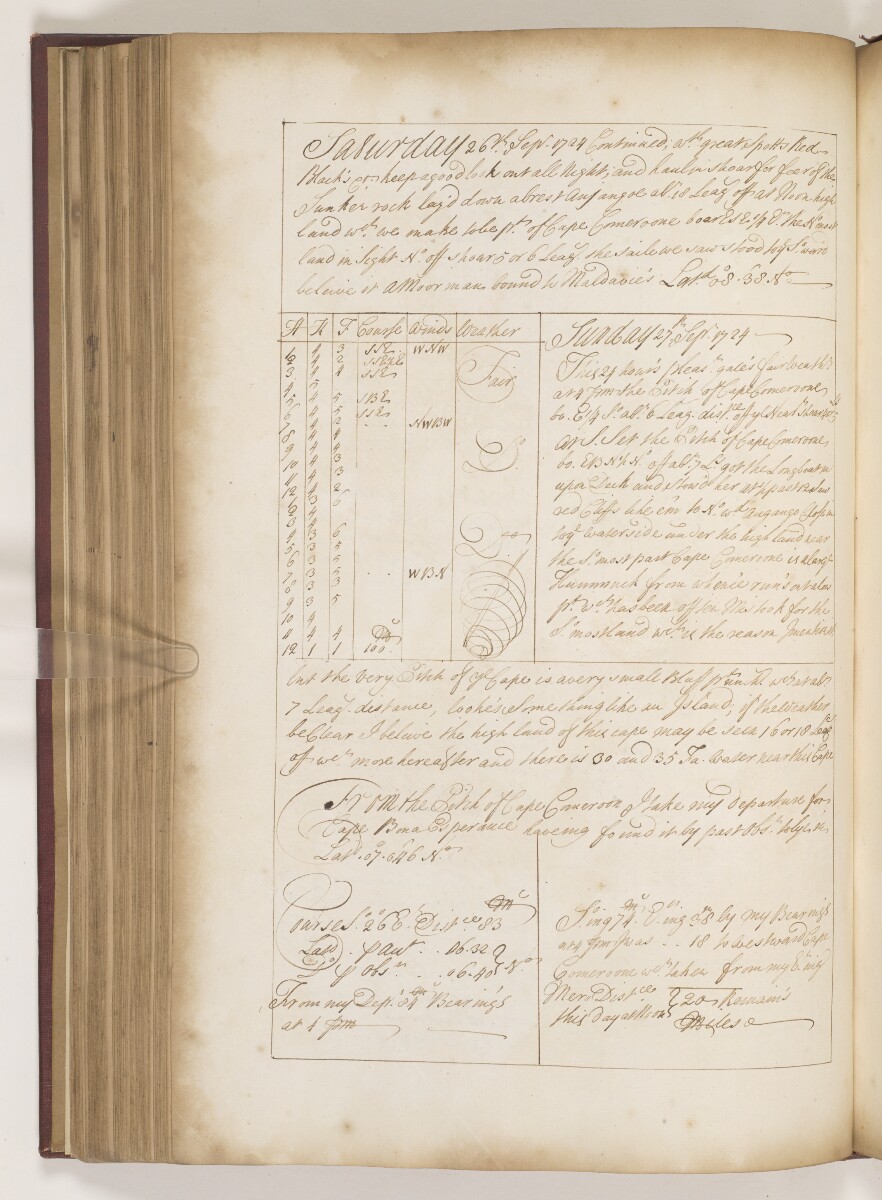 Saturday 26th Sepr. 1724 Continued, a great Spotts Red
Black &c keep a good look out all Night, and haul in shoar for fear of the
Sunken rock lay'd down abrest Anjangoe abt. 18 Leag off at Noon high
land wch. we make to be pt. of Cape Comeroone boar ESE 1/4 Ely the No. most
land in Sight No. off shoar 5 or 6 Leag. the saile we saw stood to ye So. ward
beleive it a Moor man bound to Maldavie's Latd. 08°.38 No.
H K F Course Winds Weather
Sunday 27th. Sepr. 1724
1 4 3 SSE WNW
2 4 2 SSE
3 4 4 SSE
4 5
5 4 5 SBE
6 4 5 SSE
7 4 NWBW
8 4 4
9 4 4
10 4 3
11 4 3
12 4 2
1 3 6
2 4
3 4
4 3 6
5 3 5
6 3 5
7 3 5 WBN
8 3 3
9 3 5
10 4
11 4 4
12 1 1 100
Fair
Do
Do
This 24 hours pleast. gale's fair Weather
at 4 pm the Pitch of Cape Comeroone
bo. E 1/4 So. abt. 6 Leag. distce. off ye Neart. Shoar
at S. Set the Pitch of Cape Comeroone
bo. EBN 1/2 No. off abt. 7 Ls. got the Longboat in
upon Deck and stow'd her at 1/2 past 12 saw
red Cliffs like em to No. wth close in
to ye waterside under the high land near
the So. most part Cape Comeroone is a large
Hummock from whence run's out a low
pt. wch. has been often Mistook for the
So. most land wch. is the reason
but the very Pitch of ye Cape is a very small Bluff wch at abt
7 Leag. distance, looke's something like an Island, if the weather
be Clear I beleive the high land of this cape may be seen 16 or 18 Leag
off wch. more hereafter and there is 30 and 35 Fa. Water near this Cape
From the Pitch of Cape Comeroon I take my Departure for
Cape Bona Esperance haveing found it by past Obs. to lye in
Latd. 07°.46 No.
Course So. 26 E Distce. 83 Ms
Latd. p acct. 06.32
Do p obsn. 06.40 No.
From my Dept. 84 Ms Bearings
at 4 pm
So. ing 74 Ms E. ing 38 by my Bearings
at 4 pm I was .. 18 to Westward Cape
Comeroone wch. taken from my E. ing
Merd Distce
this day at Noon 20 Remains
Miles